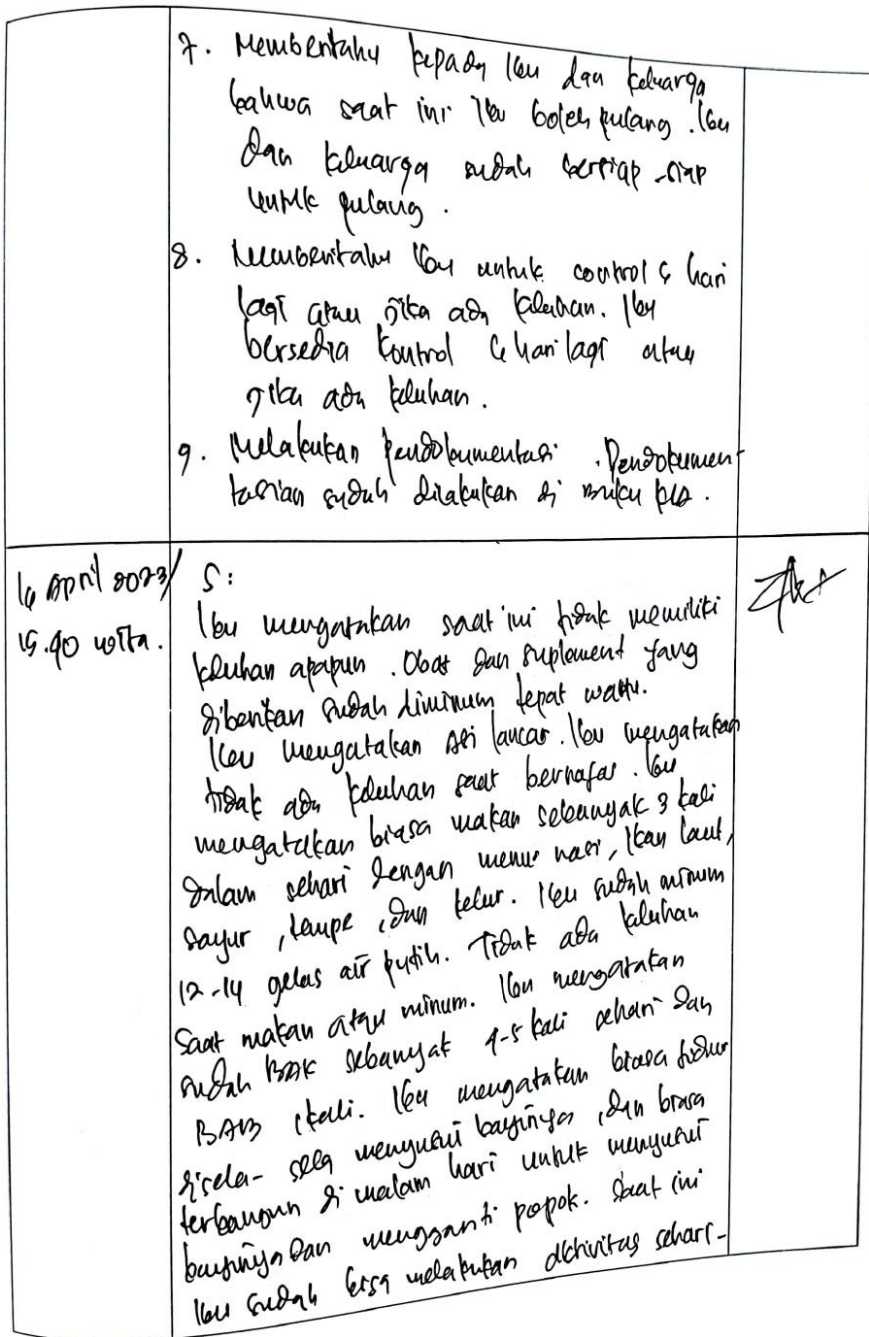 7. Membentahu kepada Ibu dan keluarga
bahwa saat ini Ibu boleh pulang. Ibu
dan keluarga sudah bersiap-siap
untuk pulang.
8. Memberitahu Ibu untuk control hari
lagi atau jika ada keluhan. Ibu
bersedia kontrol hari lagi atau
jika ada keluhan.
9. Melakukan pendokumentasi. Pendokumen-
tasian sudah dilakukan di buku KIA.
April 2023/
wita.
S:
Ibu mengatakan saat ini tidak memiliki
keluhan apapun. Obat dan suplement yang
diberikan sudah diminum tepat waktu.
Ibu mengatakan ASI lancar. Ibu mengatakan
tidak ada keluhan saat bernafas. Ibu
mengatakan biasa makan sebanyak 3 kali
dalam sehari dengan menu nasi, ikan laut,
sayur, tempe, dan telur. Ibu sudah minum
12-14 gelas air putih. Tidak ada keluhan
saat makan atau minum. Ibu mengatakan
sudah BAK sebanyak 4-5 kali sehari dan
BAB 1 kali. Ibu mengatakan biasa tidur
disela-sela menyusui bayinya, dan biasa
terbangun di malam hari untuk menyusui
bayinya dan mengganti popok. Saat ini
Ibu sudah bisa melakukan aktivitas sehari-